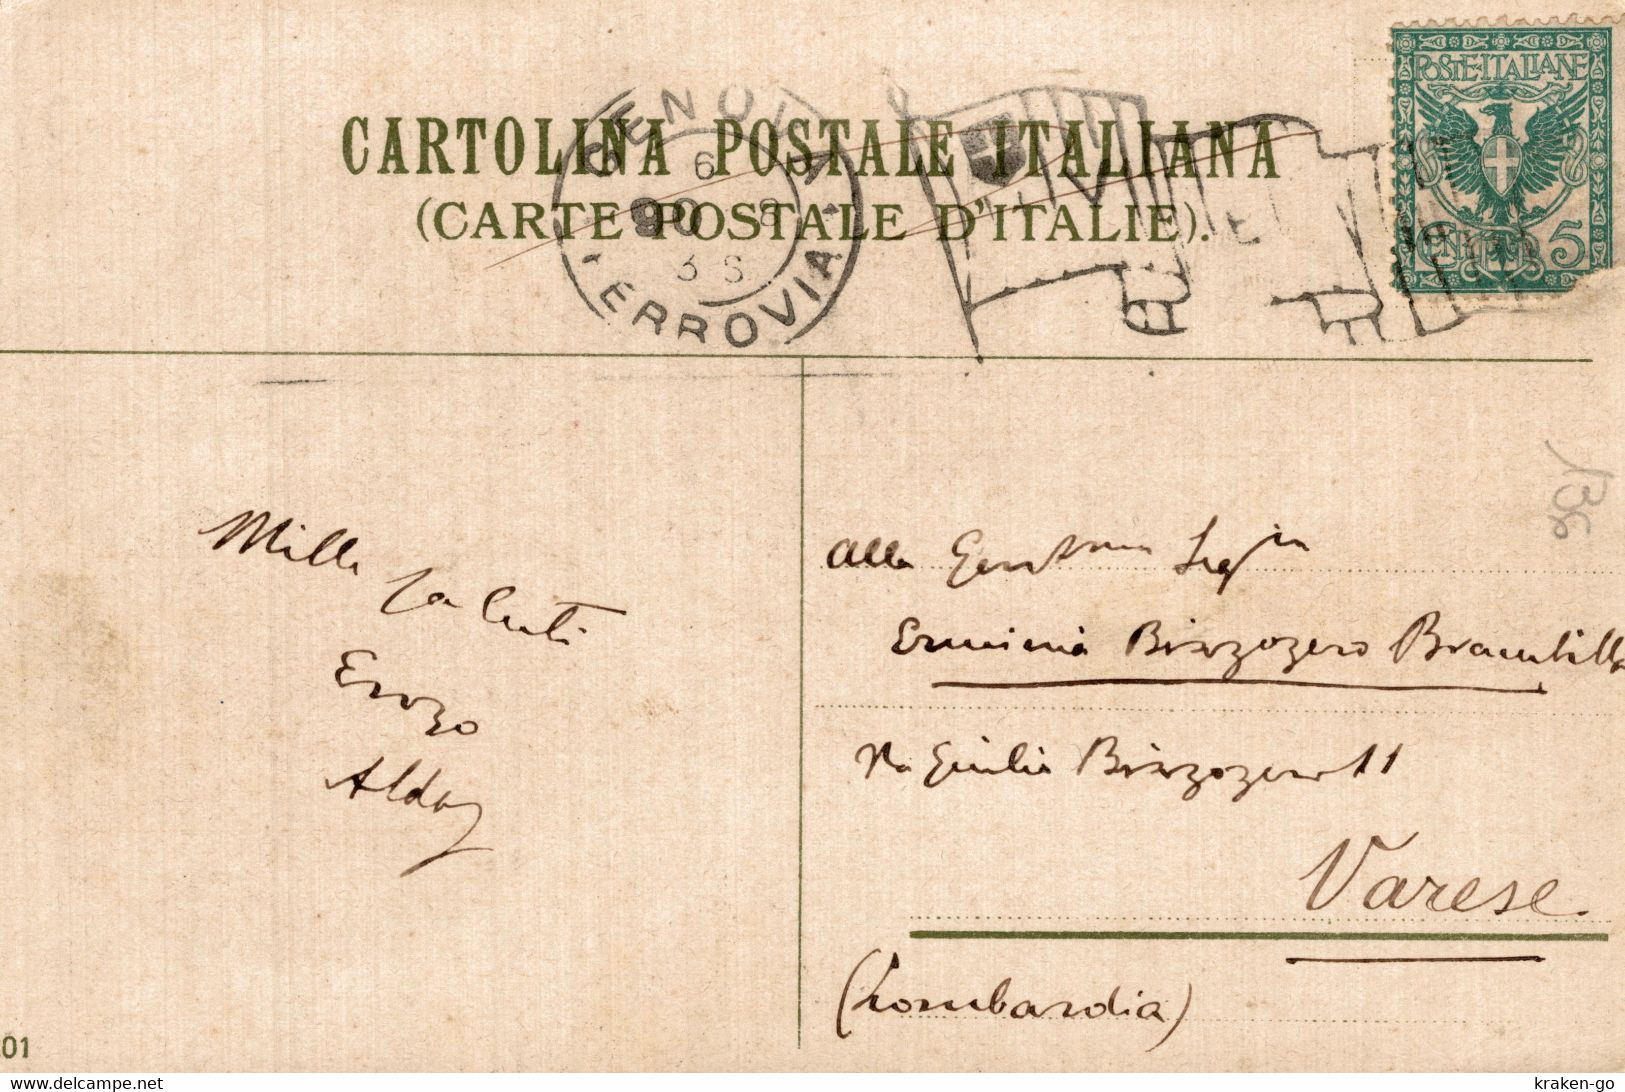 CARTOLINA POSTALE ITALIANA
(CARTE POSTALE D'ITALIE).
GENOVA
FERROVIA
POSTE·ITALIANE
CENT 5
136
Mille saluti
Enzo
Alda
Alla Gent.ma Sig.ra
Erminia Bizzozero Brambilla
Via Giulio Bizzozero 11
Varese
(Lombardia)
01
www.delcampe.net
kraken-go